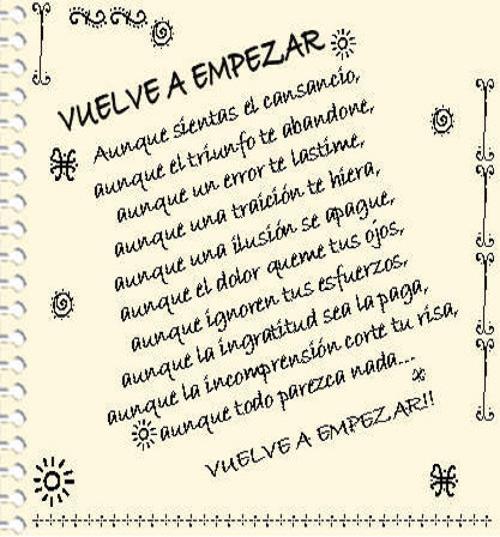 VUELVE A EMPEZAR
Aunque sientas el cansancio,
aunque el triunfo te abandone,
aunque un error te lastime,
aunque una traición te hiera,
aunque una ilusión se apague,
aunque el dolor queme tus ojos,
aunque ignoren tus esfuerzos,
aunque la ingratitud sea la paga,
aunque la incomprensión corte tu risa,
aunque todo parezca nada...
VUELVE A EMPEZAR!!